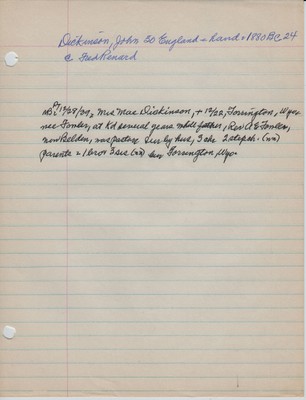 Dickinson, John 30 England - hand - 1880 BC 24
c Fred Renard
12/29/27, Mrs Mae Dickinson, + 12/22, Torrington, Wyo.
nee Fowler, at Kd several years while father, Rev A E Fowler,
now Belden, was pastor. Surv by hus, 3 chs 2 stepch. (nn)
parents - 1 bro & 3 sis (nn) bur Torrington Wyo.